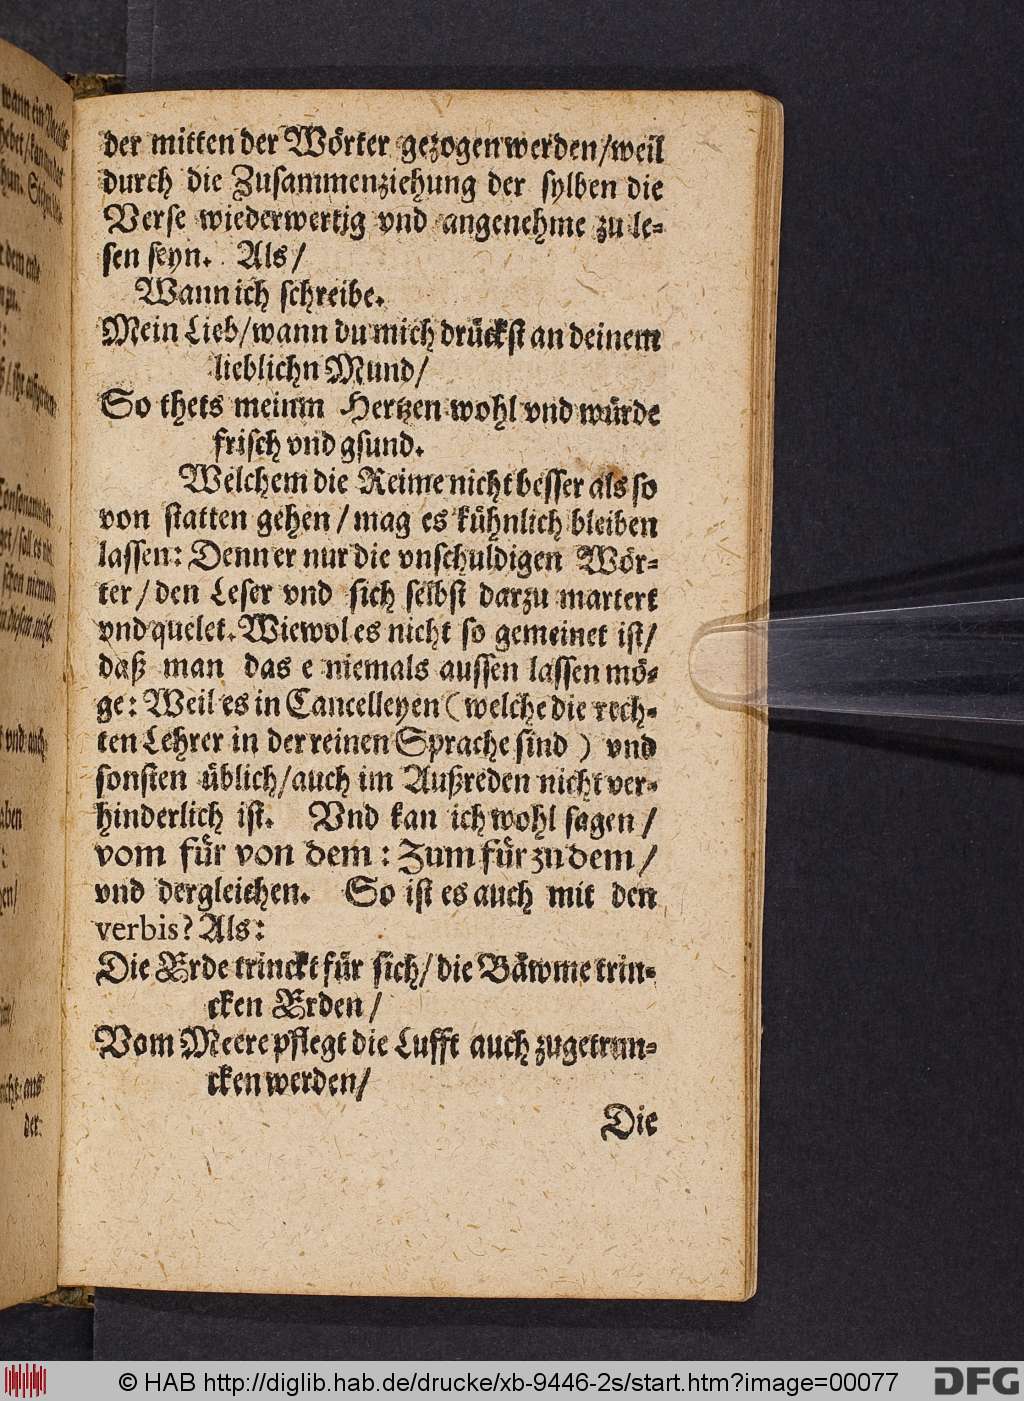 der mitten der Wörter gezogen werden/weil
durch die Zusammenziehung der sylben die
Verse wiederwertig vnd angenehme zu le-
sen seyn. Als/
Wann ich schreibe.
Mein Lieb/wann du mich drückst an deinem
lieblichn Mund/
So thets meinm Hertzen wohl vnd würde
frisch vnd gsund.
Welchem die Reime nicht besser als so
von statten gehen/mag es kühnlich bleiben
lassen: Denn er nur die vnschuldigen Wör-
ter/den Leser vnd sich selbst darzu martert
vnd quelet. Wiewol es nicht so gemeinet ist/
daß man das e niemals aussen lassen mö-
ge: Weil es in Cancelleyen (welche die rech-
ten Lehrer in der reinen Sprache sind) vnd
sonsten üblich/auch im Außreden nicht ver-
hinderlich ist. Vnd kan ich wohl sagen/
vom für von dem: Zum für zu dem/
vnd dergleichen. So ist es auch mit den
verbis? Als:
Die Erde trinckt für sich/die Bäwme trin-
cken Erden/
Vom Meere pflegt die Lufft auch zugetrun-
cken werden/
Die
© HAB http://diglib.hab.de/drucke/xb-9446-2s/start.htm?image=00077
DFG